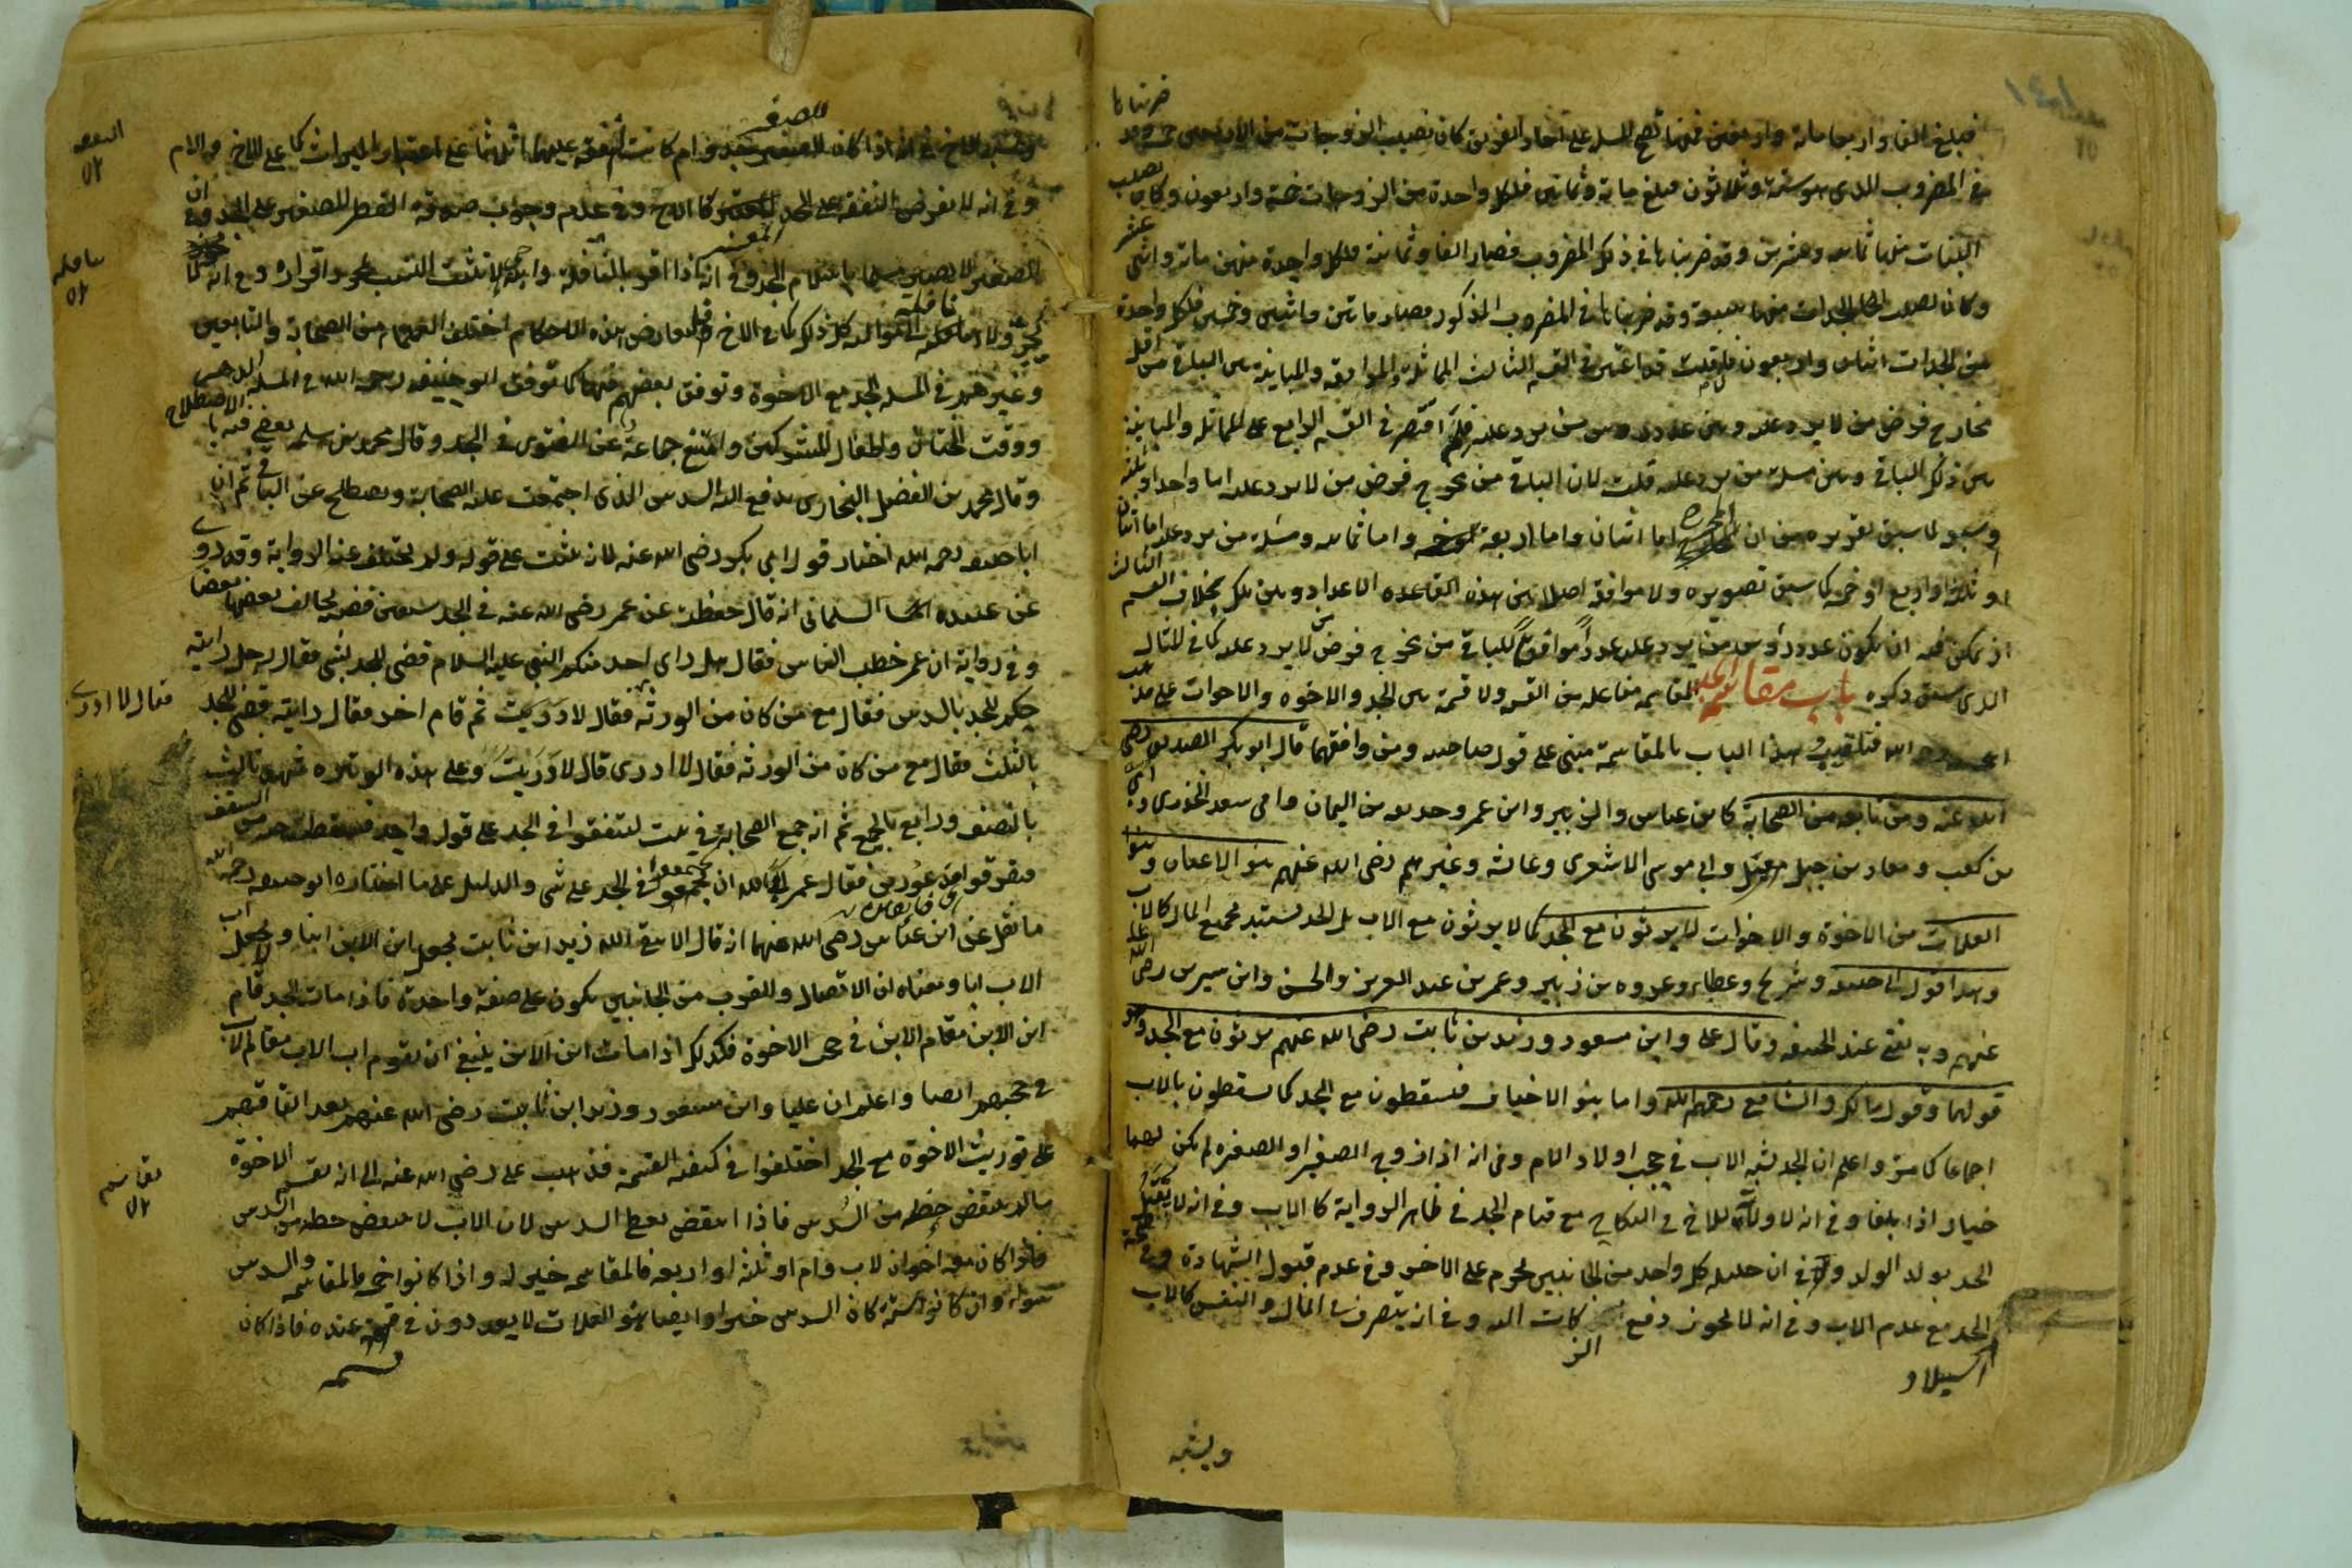 فبلغ الفا واربعا مائة واربعين فمنها تصح المسئلة على احاد الفريق كان نصيب الزوجات من الاصل خمسة وقد ضربناها
في المضروب الذى هو ستة وثلاثون فبلغ ماية وثمانين فلكل واحدة من الزوجات خمسة واربعون وكان نصيب
البنات منها ثمانية وعشرين وقد ضربناها في ذلك المضروب فصار الفا وثمانية فلكل واحدة منهن مائة واثنى عشر
وكان نصيب الجدات منها سبعة وقد ضربناها في المضروب المذكور فصار ماتين واثنين وخمسين فلكل واحدة
من الجدات اثنان واربعون فان قلت قد اعتبر في القسم الثالث المماثلة والموافقة والمباينة بين الباقي من اقل
مخارج فرض من لا يرد عليه وبين عدد رؤس من يرد عليه فلم اقتصر في القسم الرابع على المماثلة والمباينة
بين ذلك الباقي وبين مسئلة من يرد عليه قلت لان الباقي من مخرج فرض من لا يرد عليه اما واحد او ثلثة
او سبعة لما سبق تقريره من ان المخرج اما اثنان واما اربعة واما ثمانية ومسئلة من يرد عليه اما اثنان
او ثلثة او اربع او خمسة كما سبق تصويره ولا موافقة اصلا بين هذه القاعدة الاعداد وبين تلك بخلاف القسم الثالث
اذ يمكن فيه ان يكون عدد رؤس من يرد عليه عددا موافقا للباقي من مخرج فرض من لا يرد عليه كما في المثال
الذى سبق ذكره باب مقاسمة الجد المقاسمة مفاعلة من القسم ولا قسمة بين الجد والاخوة والاخوات على مذهب
ابى حنيفة رحمه الله فتلقيب هذا الباب بالمقاسمة مبنى على قول صاحبيه ومن وافقهما قال ابو بكر الصديق رضى
الله عنه ومن تابعه من الصحابة كابن عباس والزبير وابن عمر وحذيفه بن اليمان وابى سعد الخدرى وابى
بن كعب ومعاذ بن جبل وابي موسى الاشعرى وعائشة وغيرهم رضى الله عنهم بنو الاعيان وبنو
العلات من الاخوة والاخوات لا يرثون مع الجد كما لا يرثون مع الاب بل الجد يستبد بجميع المال كالاب
وهذا قول ابى حنيفة وشريح وعطاء وعروه بن زبير وعمر بن عبد العزيز والحسن وابن سيرين رضى الله
عنهم وبه يفتى عند الحنيفة وقال على وابن مسعود وزيد بن ثابت رضى الله عنهم يرثون مع الجد وهو
قولهما وقول مالك والشافع رحمهم الله واما بنو الاخياف فيسقطون مع الجد كما يسقطون بالاب
اجماعا كما مر واعلم ان الجد يشبه الاب في حجب اولاد الام وفي انه اذا زوج الصغير او الصغيرة لم يكن لهما
خيار اذا بلغا وفي انه لا ولاية للاخ في النكاح مع قيام الجد في ظاهر الرواية كالاب وفي انه لا يقتل
الجد بولد الولد وفي ان حليلة كل واحد من الجانبين تحرم على الاخر وفي عدم قبول الشهادة وفي
الجد مع عدم الاب وفي انه لا يجوز دفع الزكات اليه وفي انه يتصرف في المال والنفس كالاب
استيلاد
ويشبه
ويشبه الاخ في انه اذا كان للصغير جد وام كانت النفقة عليهما اثلاثا على اعتبار الميراث كما على الاخ والام
وفي انه لا يفرض النفقة على الجد المعسر كالاخ وفي عدم وجوب صدقة الفطر للصغير على الجد وفي ان
الصغير لا يصير مسلما باسلام الجد وفي انه اذا اقر بالنافلة وابنه حي لا يثبت النسب بمجرد اقراره وفي انه لا
يجر ولاء نافلته الى مواليه كل ذلك كما في الاخ ولتعارض هذه الاحكام اختلف العلماء من الصحابة والتابعين
وغيرهم في المسئلة الجد مع الاخوة وتوقف بعضهم فيها كما توقف ابو حنيفة رحمه الله في المسئلة الدهر
ووقت الختان واطفال المشركين وامتنع جماعة عن الفتوى في الجد وقال محمد بن سلمة يفتى فيه بالاصطلاح
وقال محمد بن الفضل البخارى يدفع اليه السدس الذى اجتمعت عليه الصحابة ويصطلح عن الباقي ثم ان
ابا حنيفة رحمه الله اختار قول ابي بكر رضى الله عنه لانه ثبت على قوله ولم يختلف عنه الرواية وقد روى
عن عبيدة السلمانى انه قال حفظت عن عمر رضى الله عنه في الجد سبعين قضية يخالف بعضها بعضا
وفي رواية ان عمر خطب الناس فقال هل راى احد منكم النبي عليه السلام قضى للجد بشئ فقال رجل رايته
حكم للجد بالسدس فقال مع من كان من الورثة فقال لا ادرى فقال لا دريت ثم قام اخر فقال رايته قضى للجد
بالثلث فقال مع من كان من الورثة فقال لا ادرى قال لا دريت وعلى هذه الوتيرة شهد ثالث
بالنصف ورابع بالجميع ثم انه جمع الصحابة في بيت ليتفقوا في الجد على قول واحد فسقطت حية من السقف
فتفرقوا مذعورين فقال عمر ابى الله ان يجتمعوا في الجد على شى والدليل على ما اختاره ابو حنيفة رحمه الله
ما نقل عن ابن عباس رضى الله عنهما انه قال الا يتق الله زيد ابن ثابت يجعل ابن الابن ابنا ولا يجعل اب
الاب ابا ومعناه ان الاتصال والقرب من الجانبين يكون على صفة واحدة فاذا مات الجد قام
ابن الابن مقام الابن في حجب الاخوة فكذلك اذا مات ابن الابن ينبغى ان يقوم اب الاب مقام الاب
في حجبهم ايضا واعلم ان عليا وابن مسعود وزيد ابن ثابت رضى الله عنهم بعد اتفاقهم
على توريث الاخوة مع الجد اختلفوا في كيفية القسمة فذهب على رضى الله عنه الى انه يقسم الاخوة
ما لم ينتقض حظه من السدس فاذا انتقض يعطى السدس لان الاب لا ينتقض حظه من السدس
فاذا كان معه اخوان لاب وام او ثلثة او اربعة فالمقاسمة خير له واذا كانوا خمسة فالمقاسمة والسدس
سواء وان كانوا ستة كان السدس خيرا وايضا بنو العلات لا يعدون في قسمة عنده فاذا كان
قسمة
فقال لا ادرى